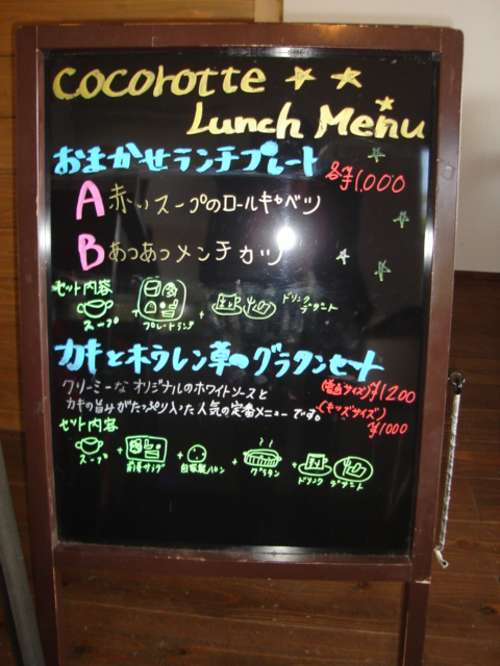 cocorotte
Lunch Menu
おまかせランチプレート 各¥1,000
A 赤いスープのロールキャベツ
B あつあつメンチカツ
セット内容
スープ + プレートランチ + ドリンク デザート
カキとホウレン草のグラタンセット
クリーミーなオリジナルのホワイトソースと
カキの旨みがたっぷり入った人気の定番メニューです。
(普通サイズ) ¥1200
(キッズサイズ)
¥1000
セット内容
スープ + 前菜サラダ + 自家製パン + グラタン + ドリンク デザート